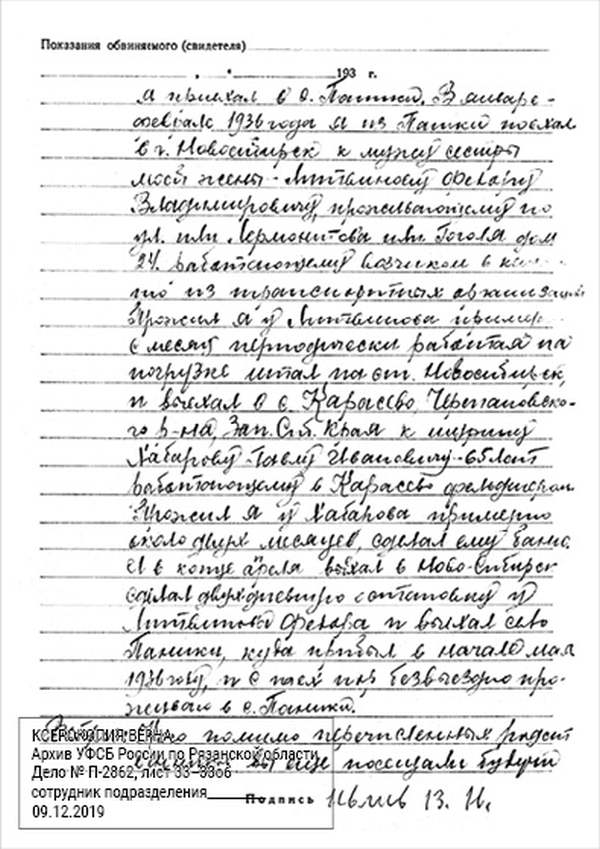 Показания обвиняемого (свидетеля)
" " 193 г.
я приехал в с. Паники. В январе-
феврале 1936 года я из Паники поехал
в г. Новосибирск к мужу сестры
моей жены - Литвинову Федору
Владимировичу, проживающему по
ул. или Лермонтова или Гоголя дом
24, работающему возчиком в
то из транспортных организаций
Прожил я у Литвинова пример
месяц периодически работая на
погрузке шпал на ст. Новосибирск,
и выехал в с. Карасево, Черепановско-
го р-на, Зап. Сиб. Края к шурину
Хабарову Павлу Ивановичу - 65 лет
работающему в Карасево фельдшером
Прожил я у Хабарова примерно
около двух месяцев, сделал ему баню.
И в конце апреля выехал в Ново-Сибирск
сделал двухдневную остановку у
Литвинова Федора и выехал село
Паники, куда прибыл в начале мая
1936 году, и с тех пор безвыездно про-
живаю в с. Паники.
помимо перечисленных
вы еще посещали будучи
КСЕРОКОПИЯ ВЕРНА
Архив УФСБ России по Рязанской области
Дело № П-2862, лист 33-33об
сотрудник подразделения
Подпись
09.12.2019